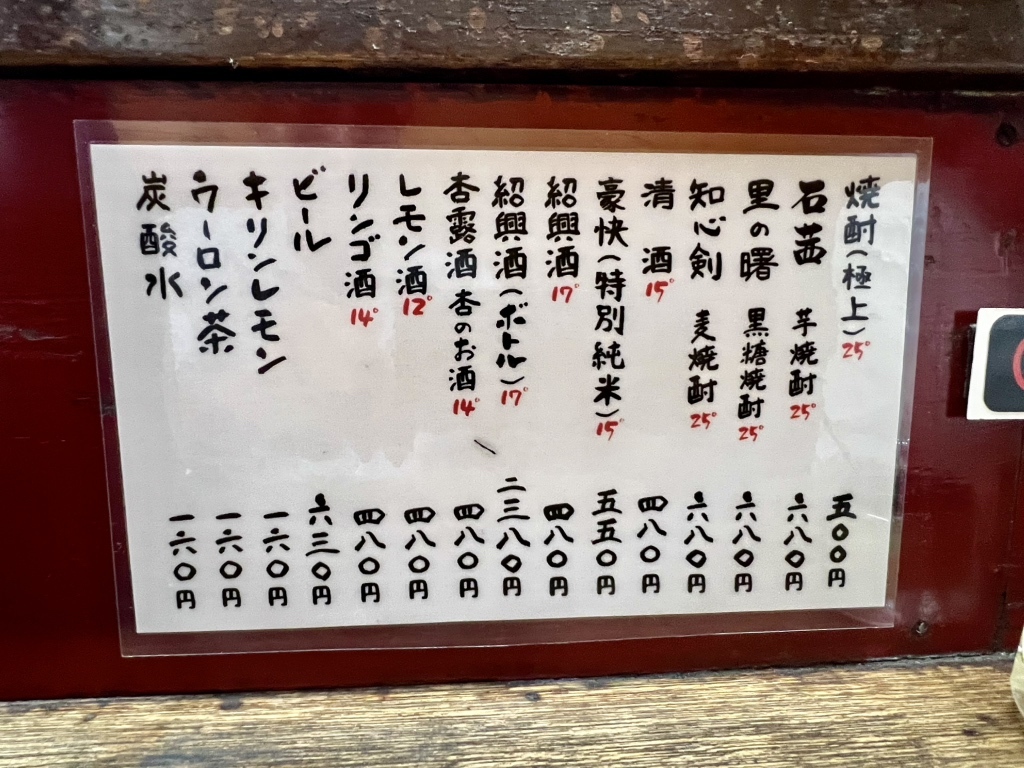 焼酎(極上)25° 五〇〇円
石茜 芋焼酎25° 六八〇円
里の曙 黒糖焼酎25° 六八〇円
知心剣 麦焼酎25° 六八〇円
清酒15° 四八〇円
豪快(特別純米)15° 五五〇円
紹興酒17° 四八〇円
紹興酒(ボトル)17° 二三八〇円
杏露酒 杏のお酒14° 四八〇円
レモン酒12° 四八〇円
リンゴ酒14° 四八〇円
ビール 六三〇円
キリンレモン 一六〇円
ウーロン茶 一六〇円
炭酸水 一六〇円